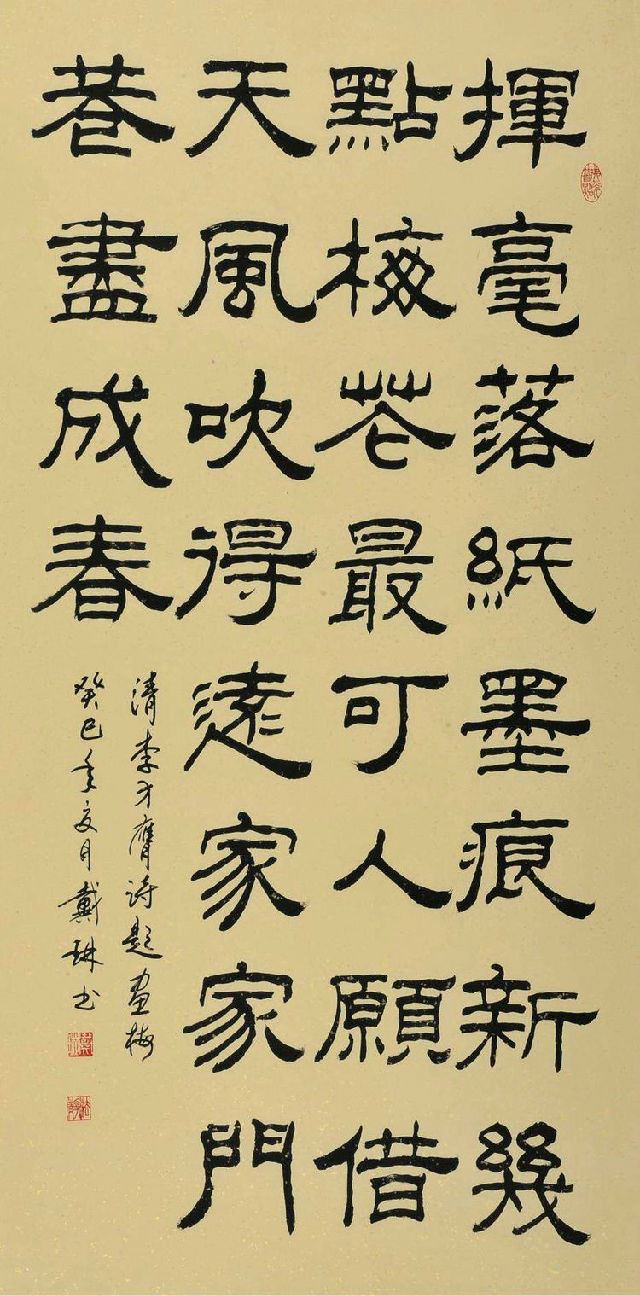 揮毫落紙墨痕新幾
點梅花最可人願借
天風吹得遠家家門
巷盡成春
清李方膺詩題畫梅
癸巳年夏月戴琳书